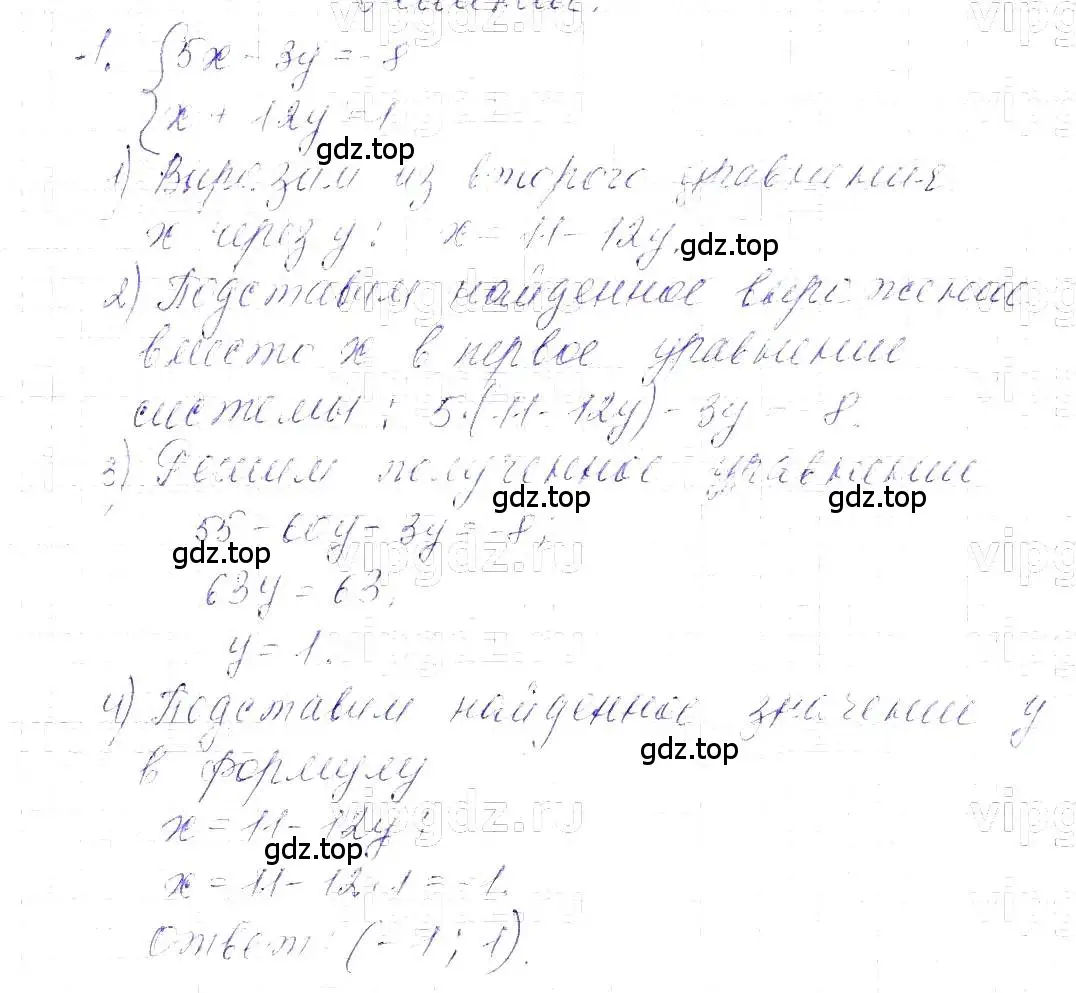 1. {5x - 3y = -8
x + 12y = 11
gdz.top
1) Выразим из второго уравнения
x через y: x = 11 - 12y.
gdz.top
2) Подставим найденное выражение
вместо x в первое уравнение
системы: 5·(11 - 12y) - 3y = -8.
3) Решим полученное уравнение
gdz.top gdz.top
55 - 60y - 3y = -8;
gdz.top
63y = 63;
y = 1.
4) Подставим найденное значение y
gdz.top
в формулу
x = 11 - 12y:
gdz.top
x = 11 - 12·1 = -1.
Ответ: (-1; 1).